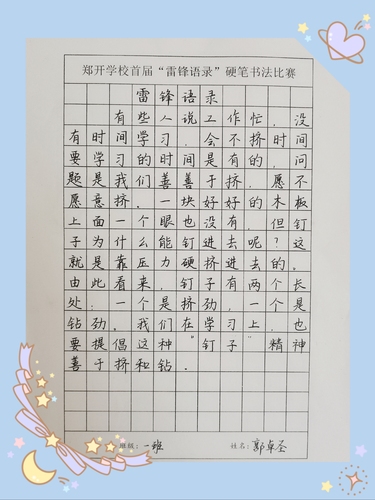 郑开学校首届“雷锋语录”硬笔书法比赛
雷锋语录
有些人说工作忙，没
有时间学习．会不挤时间
要学习的时间是有的，问
题是我们善善于挤．愿不
愿意挤．一块好好的木板
上面一个眼也没有．但钉
子为什么能钉进去呢？这
就是靠压力硬挤进去的。
由此看来，钉子有两个长
处．一个是挤劲，一个是
钻劲。我们在学习上，也
要提倡这种“钉子”精神
善于挤和钻．
班级：一班 姓名：郭卓圣